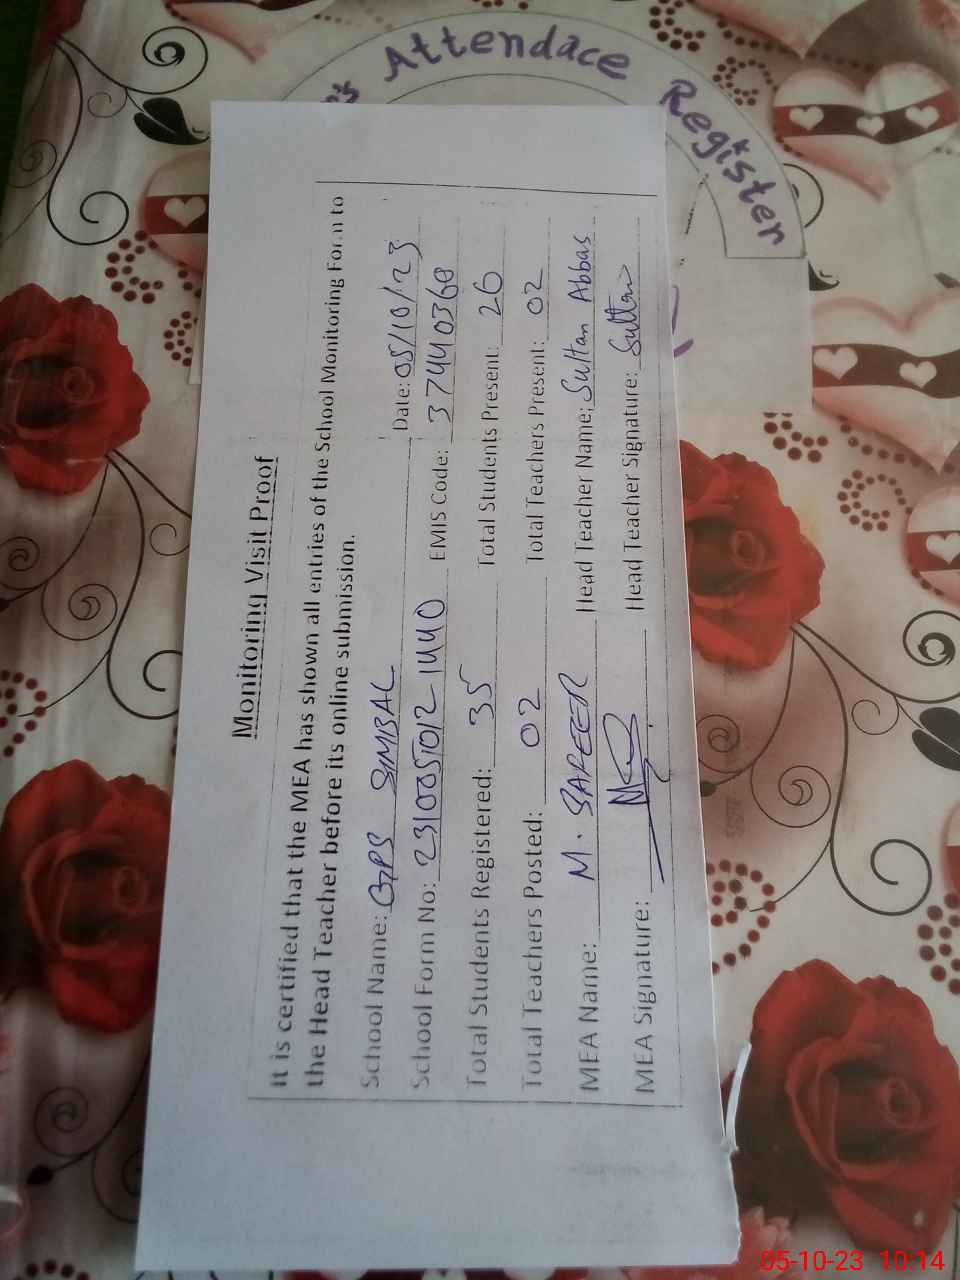 's Attendace Register
Monitoring Visit Proof
It is certified that the MEA has shown all entries of the School Monitoring Form to
the Head Teacher before its online submission.
School Name: GPS SIMBAL Date: 05/10/23
School Form No: 231005012-1440 EMIS Code: 37440368
Total Students Registered: 35 Total Students Present: 26
Total Teachers Posted: 02 Total Teachers Present: 02
MEA Name: M. SAREER Head Teacher Name: Sultan Abbas
MEA Signature: Head Teacher Signature: Sultan
05-10-23 10:14